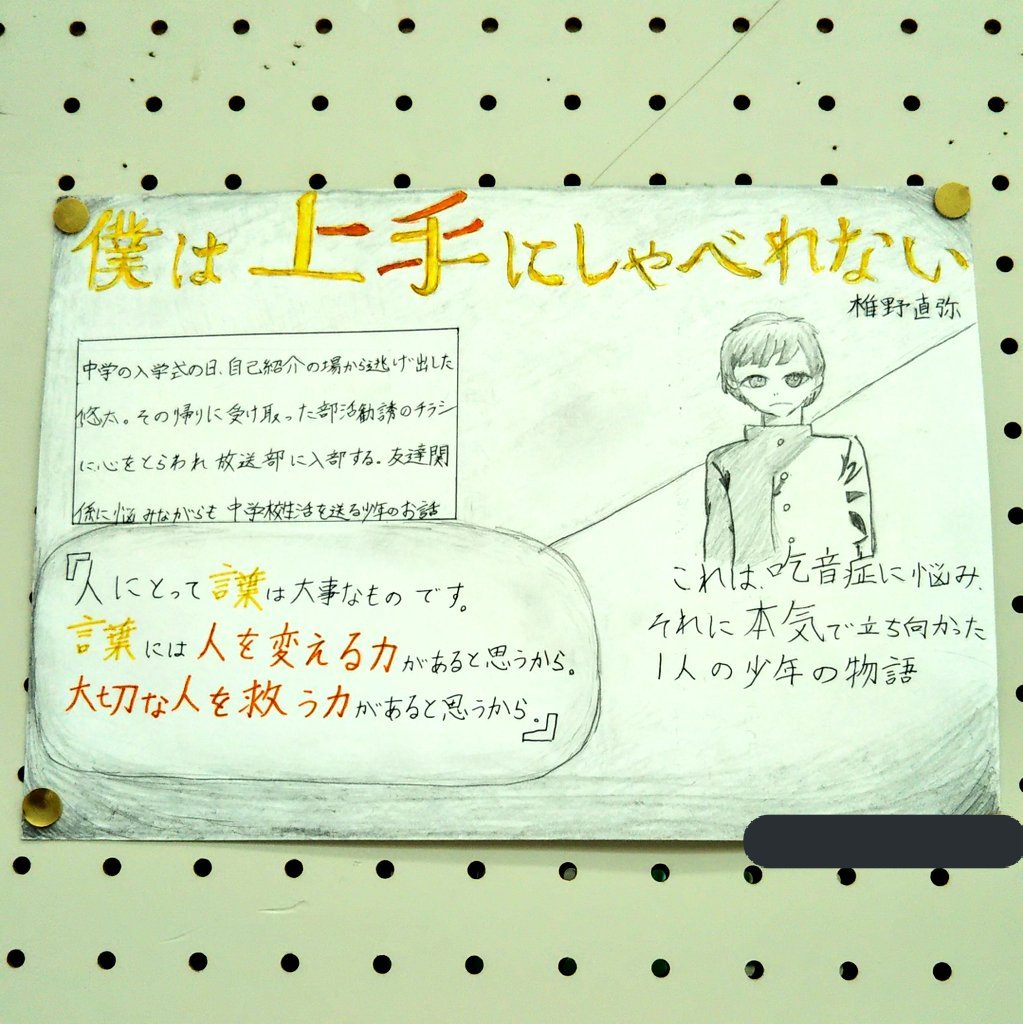 僕は上手にしゃべれない
椎野直弥
中学の入学式の日、自己紹介の場から逃げ出した
悠太。その帰りに受け取った部活勧誘のチラシ
に心をとらわれ放送部に入部する。友達関
係に悩みながらも中学校生活を送る少年のお話
『人にとって言葉は大事なものです。
言葉には人を変える力があると思うから。
大切な人を救う力があると思うから。』
これは、吃音症に悩み、
それに本気で立ち向かった
1人の少年の物語